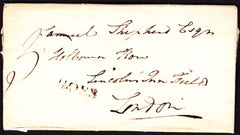 Samuel Shepherd Esqr
Holbourn Row
Lincoln's Inn Fields
London